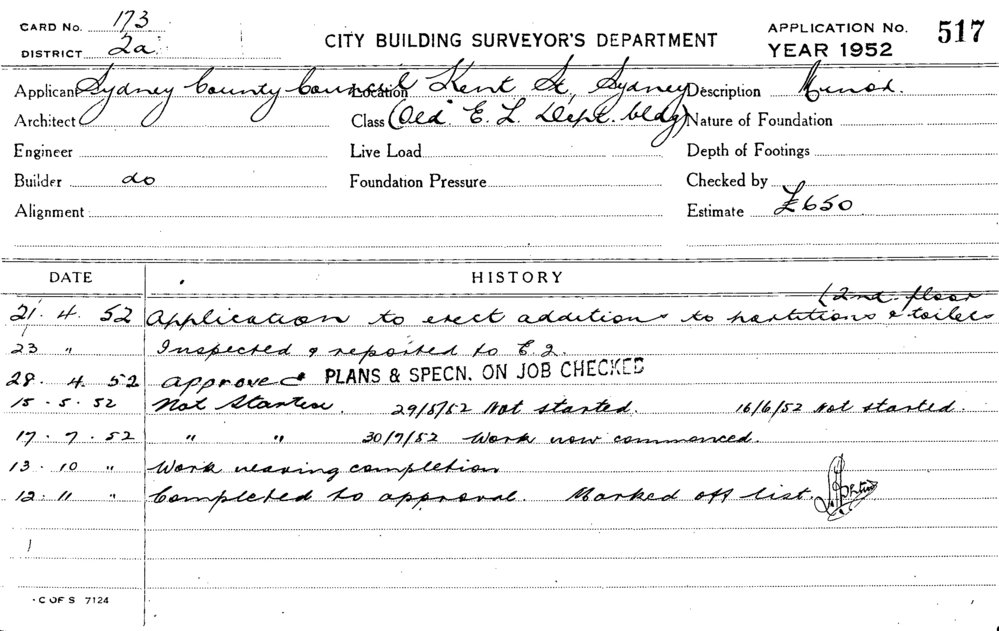 CARD No. 173
DISTRICT 2a
CITY BUILDING SURVEYOR'S DEPARTMENT
APPLICATION No. 517
YEAR 1952
Applicant Sydney County Council Location Kent St, Sydney Description Minor.
Architect Class (Old E. L. Dept. bldg) Nature of Foundation
Engineer Live Load Depth of Footings
Builder do Foundation Pressure Checked by
Alignment Estimate £650
DATE HISTORY
(2nd floor
21. 4. 52 Application to erect additions to partitions & toilets
23 " Inspected & reported to E.I.
28. 4. 52 Approved PLANS & SPECN. ON JOB CHECKED
15. 5. 52 Not Started. 29/5/52 Not started. 16/6/52 Not started.
17. 7. 52 " " 30/7/52 Work now commenced.
13. 10 " Work nearing completion
12. 11 " Completed to approval. Marked off list.
C OF S 7124